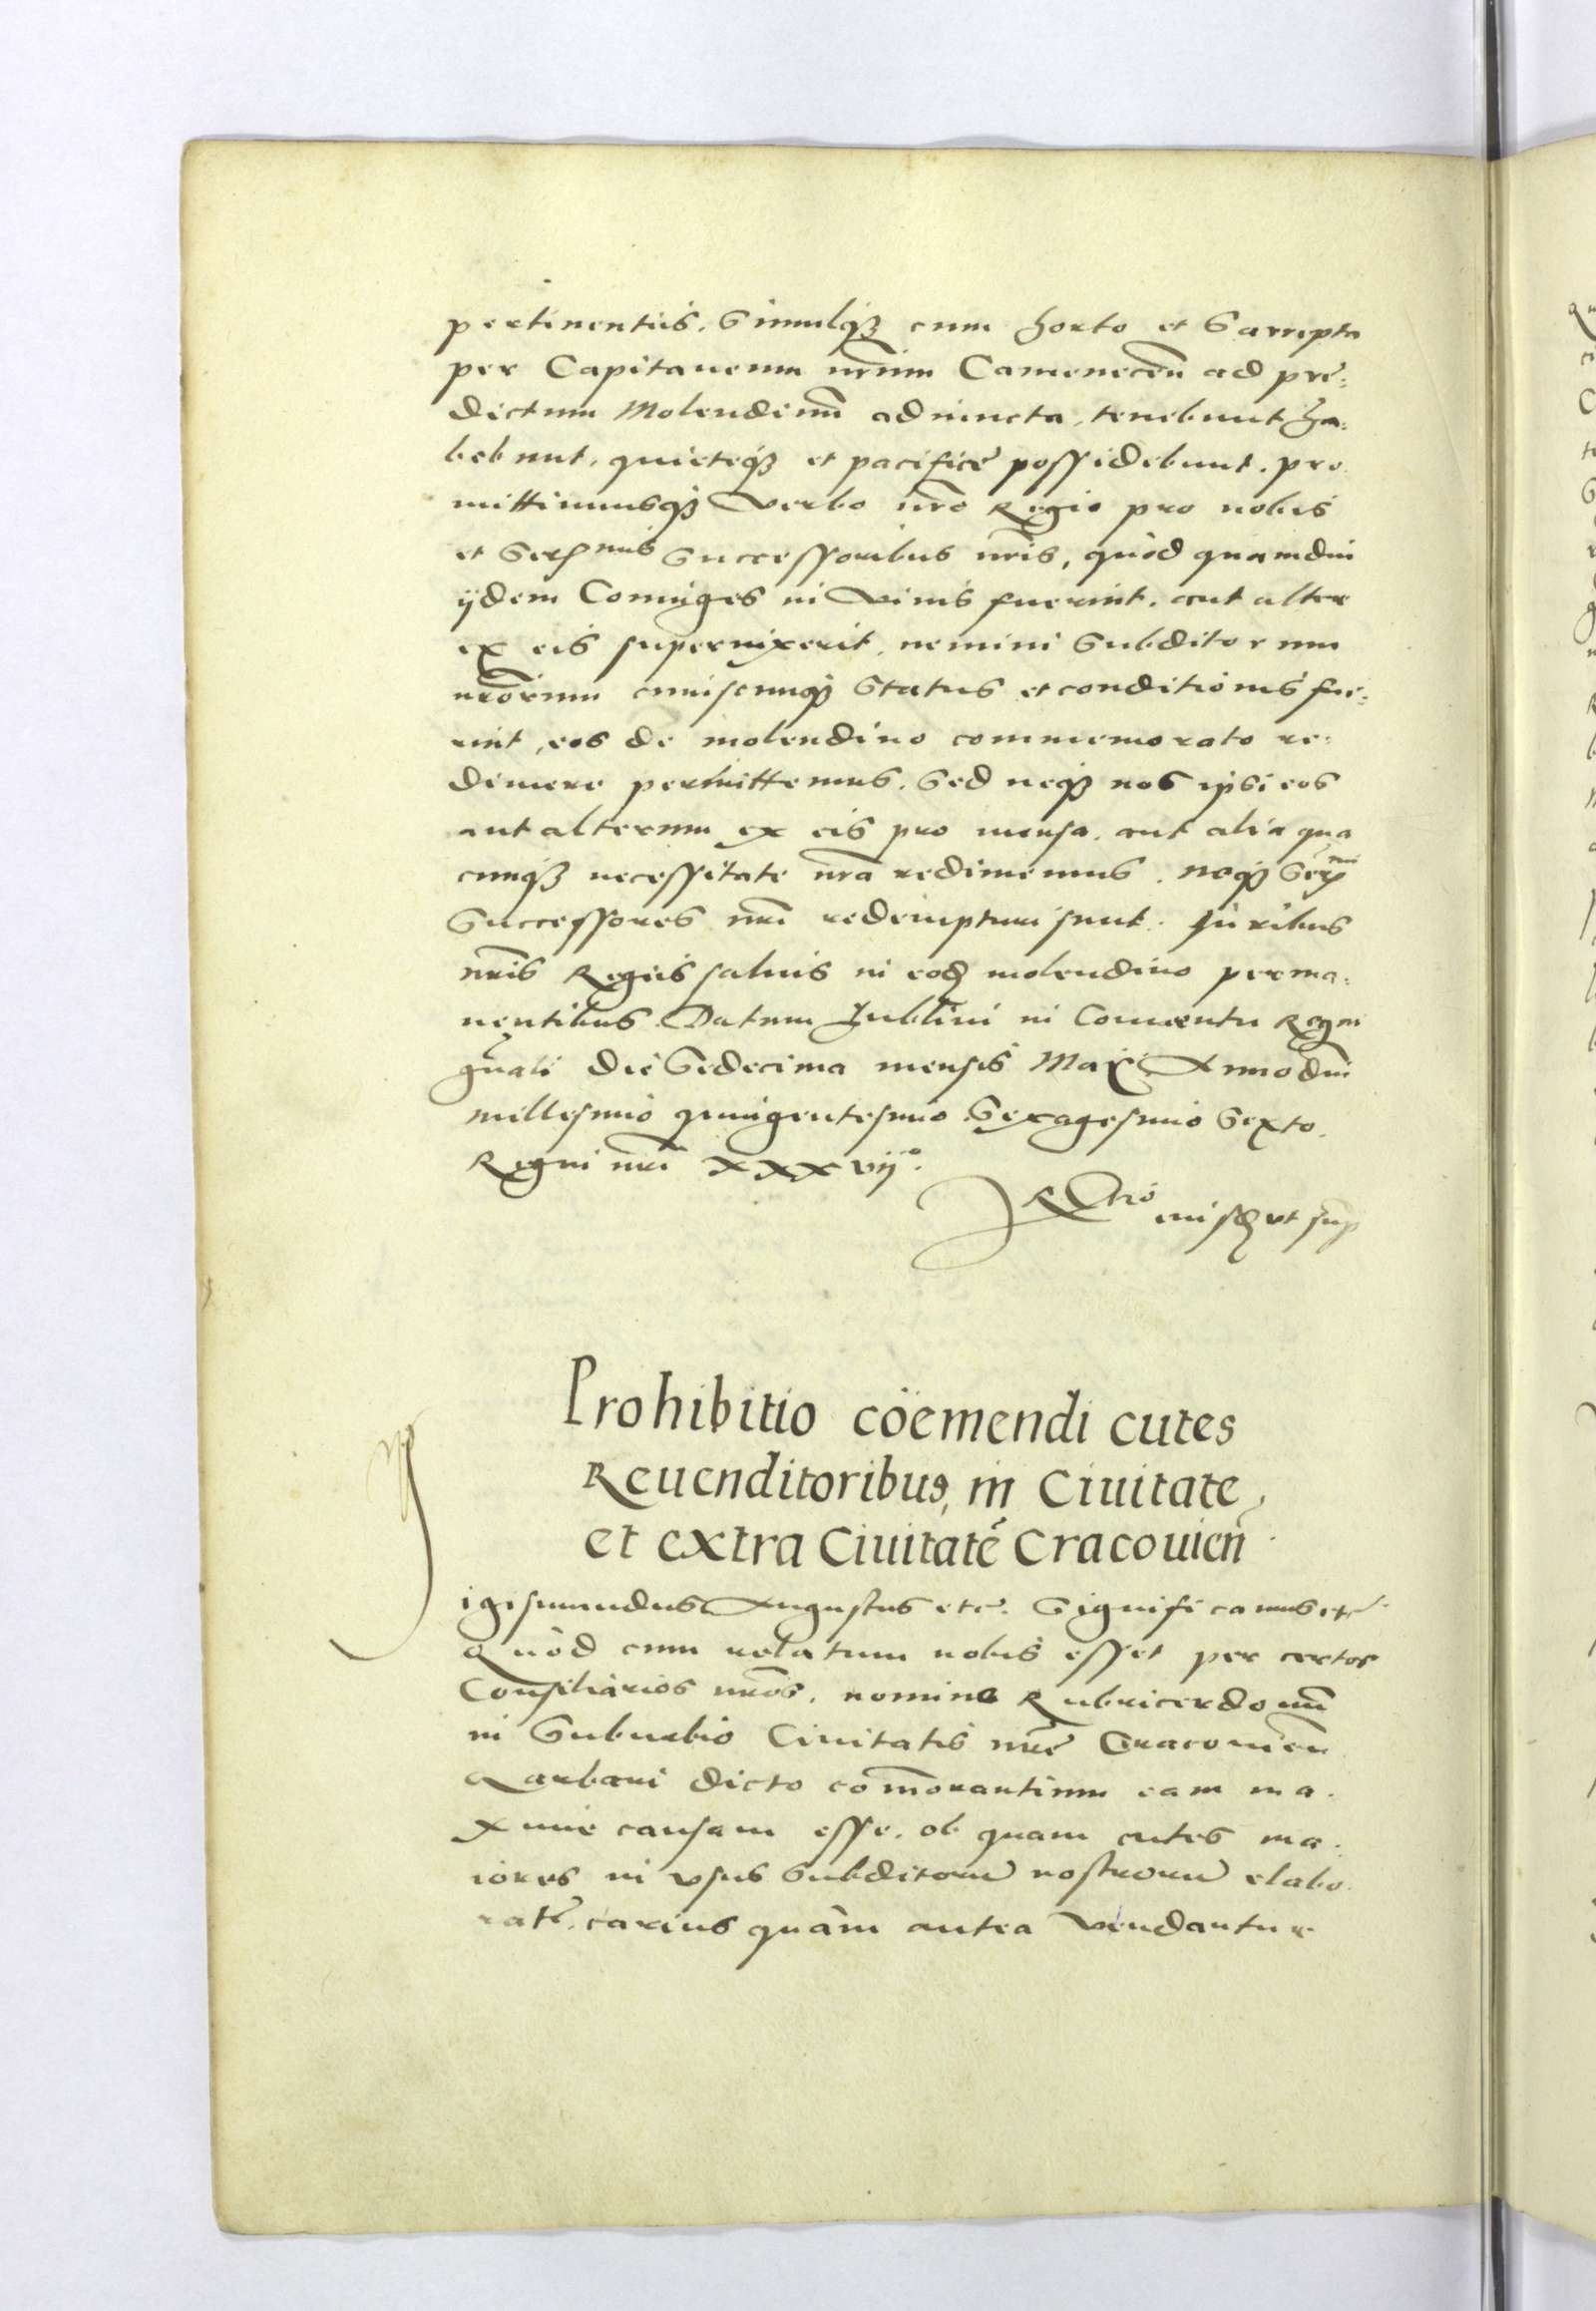 pertinentiis. Simulq₃ cum horto et Sarrepta
per Capitaneum nr̃um Camenecen̄ ad præ:
dictum Molendinũ adiuncta, tenebunt ha:
bebunt, quieteq₃ et pacificè possidebunt. pro
mittimusq₃ Verbo nr̃o Regio pro nobis
et Ser^mis Successoribus nr̃is, quòd quamdiu
ijdem Coniuges in Viuis fuerint, aut alter
ex eis superuixerit, nemini Subditorum
nr̃orum cuiuscunq₃ Status et conditionis fue:
rint, eos de molendino commemorato re:
dimere permittemus. Sed neq₃ nos ipsi eos
aut alterum ex eis pro mensa, aut alia qua
cunq₃ necessitate nr̃a redimemus. Neq₃ Ser^mi
Successores nr̃i redempturi sunt. Juribus
nr̃is Regijs saluis in eod molendino perma:
nentibus. Datum Lublini in Conuentu Regni
gn̄ali die Sedecima mensis Maij Anno dn̄i
millesimo quingentesimo Sexagesimo Sexto.
Regni nr̃i xxxvij°.
R^tio eiusd vt sup
Prohibitio cöemendi cutes
Reuenditoribus, in Ciuitate,
et extra Ciuitatẽ Cracouien̄
igismundus Augustus etc. Significamus etc.
Quòd cum relatum nobis esset per certos
Consiliarios nr̃os, nomine Rubricerdonũ
in Suburbio Ciuitatis nr̃e Cracouien̄
Garbari dicto com̃orantium eam ma.
xime causam esse, ob quam cutes ma.
iores in vsus Subditorũ nostrorũ elabo.
ratę, carius quàm antea vendantur